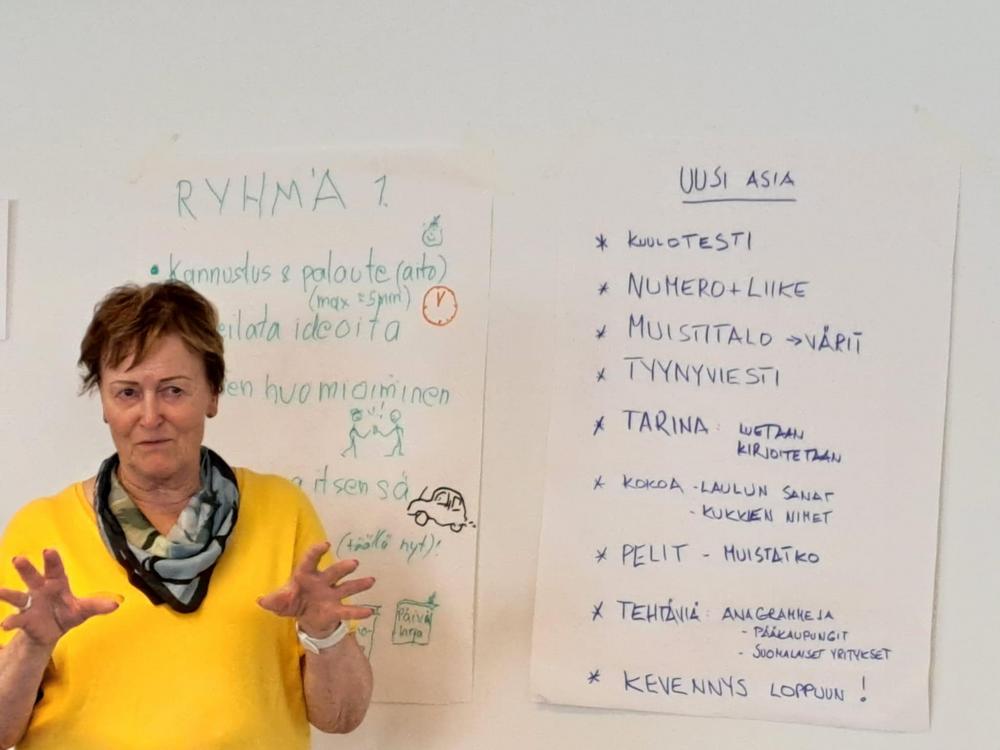 RYHMÄ 1.
• Kannustus & palaute (aito)
(max = 5min)
ideoita
huomioiminen
itsensä
(täällä nyt)!
Päivä
kirja
UUSI ASIA
* KUULOTESTI
* NUMERO + LIIKE
* MUISTITALO → VÄRIT
* TYYNYVIESTI
* TARINA: LUETAAN
KIRJOITETAAN
* KOKOA - LAULUN SANAT
- KUKKIEN NIMET
* PELIT - MUISTATKO
* TEHTÄVIÄ: ANAGRAMMEJA
- PÄÄKAUPUNGIT
- SUOMALAISET YRITYKSET
* KEVENNYS LOPPUUN!